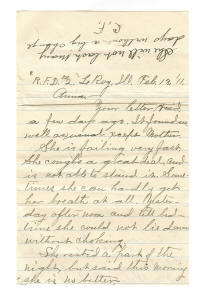 She will not last many
days without a big change
C. F.
"R.F.D. #2, LeRoy, Ill. Feb 12 '11.
Anna—
Your letter
a few days ago. It found us
well as usual except Mother.
She is failing very fast.
She coughs a great deal, and
is not able to stand is. Some-
times she can hardly get
her breath at all. Yester-
day after noon and till bed-
time she could not lie down
without choking.
She rested a part of the
night, but said this morning
she is no better.